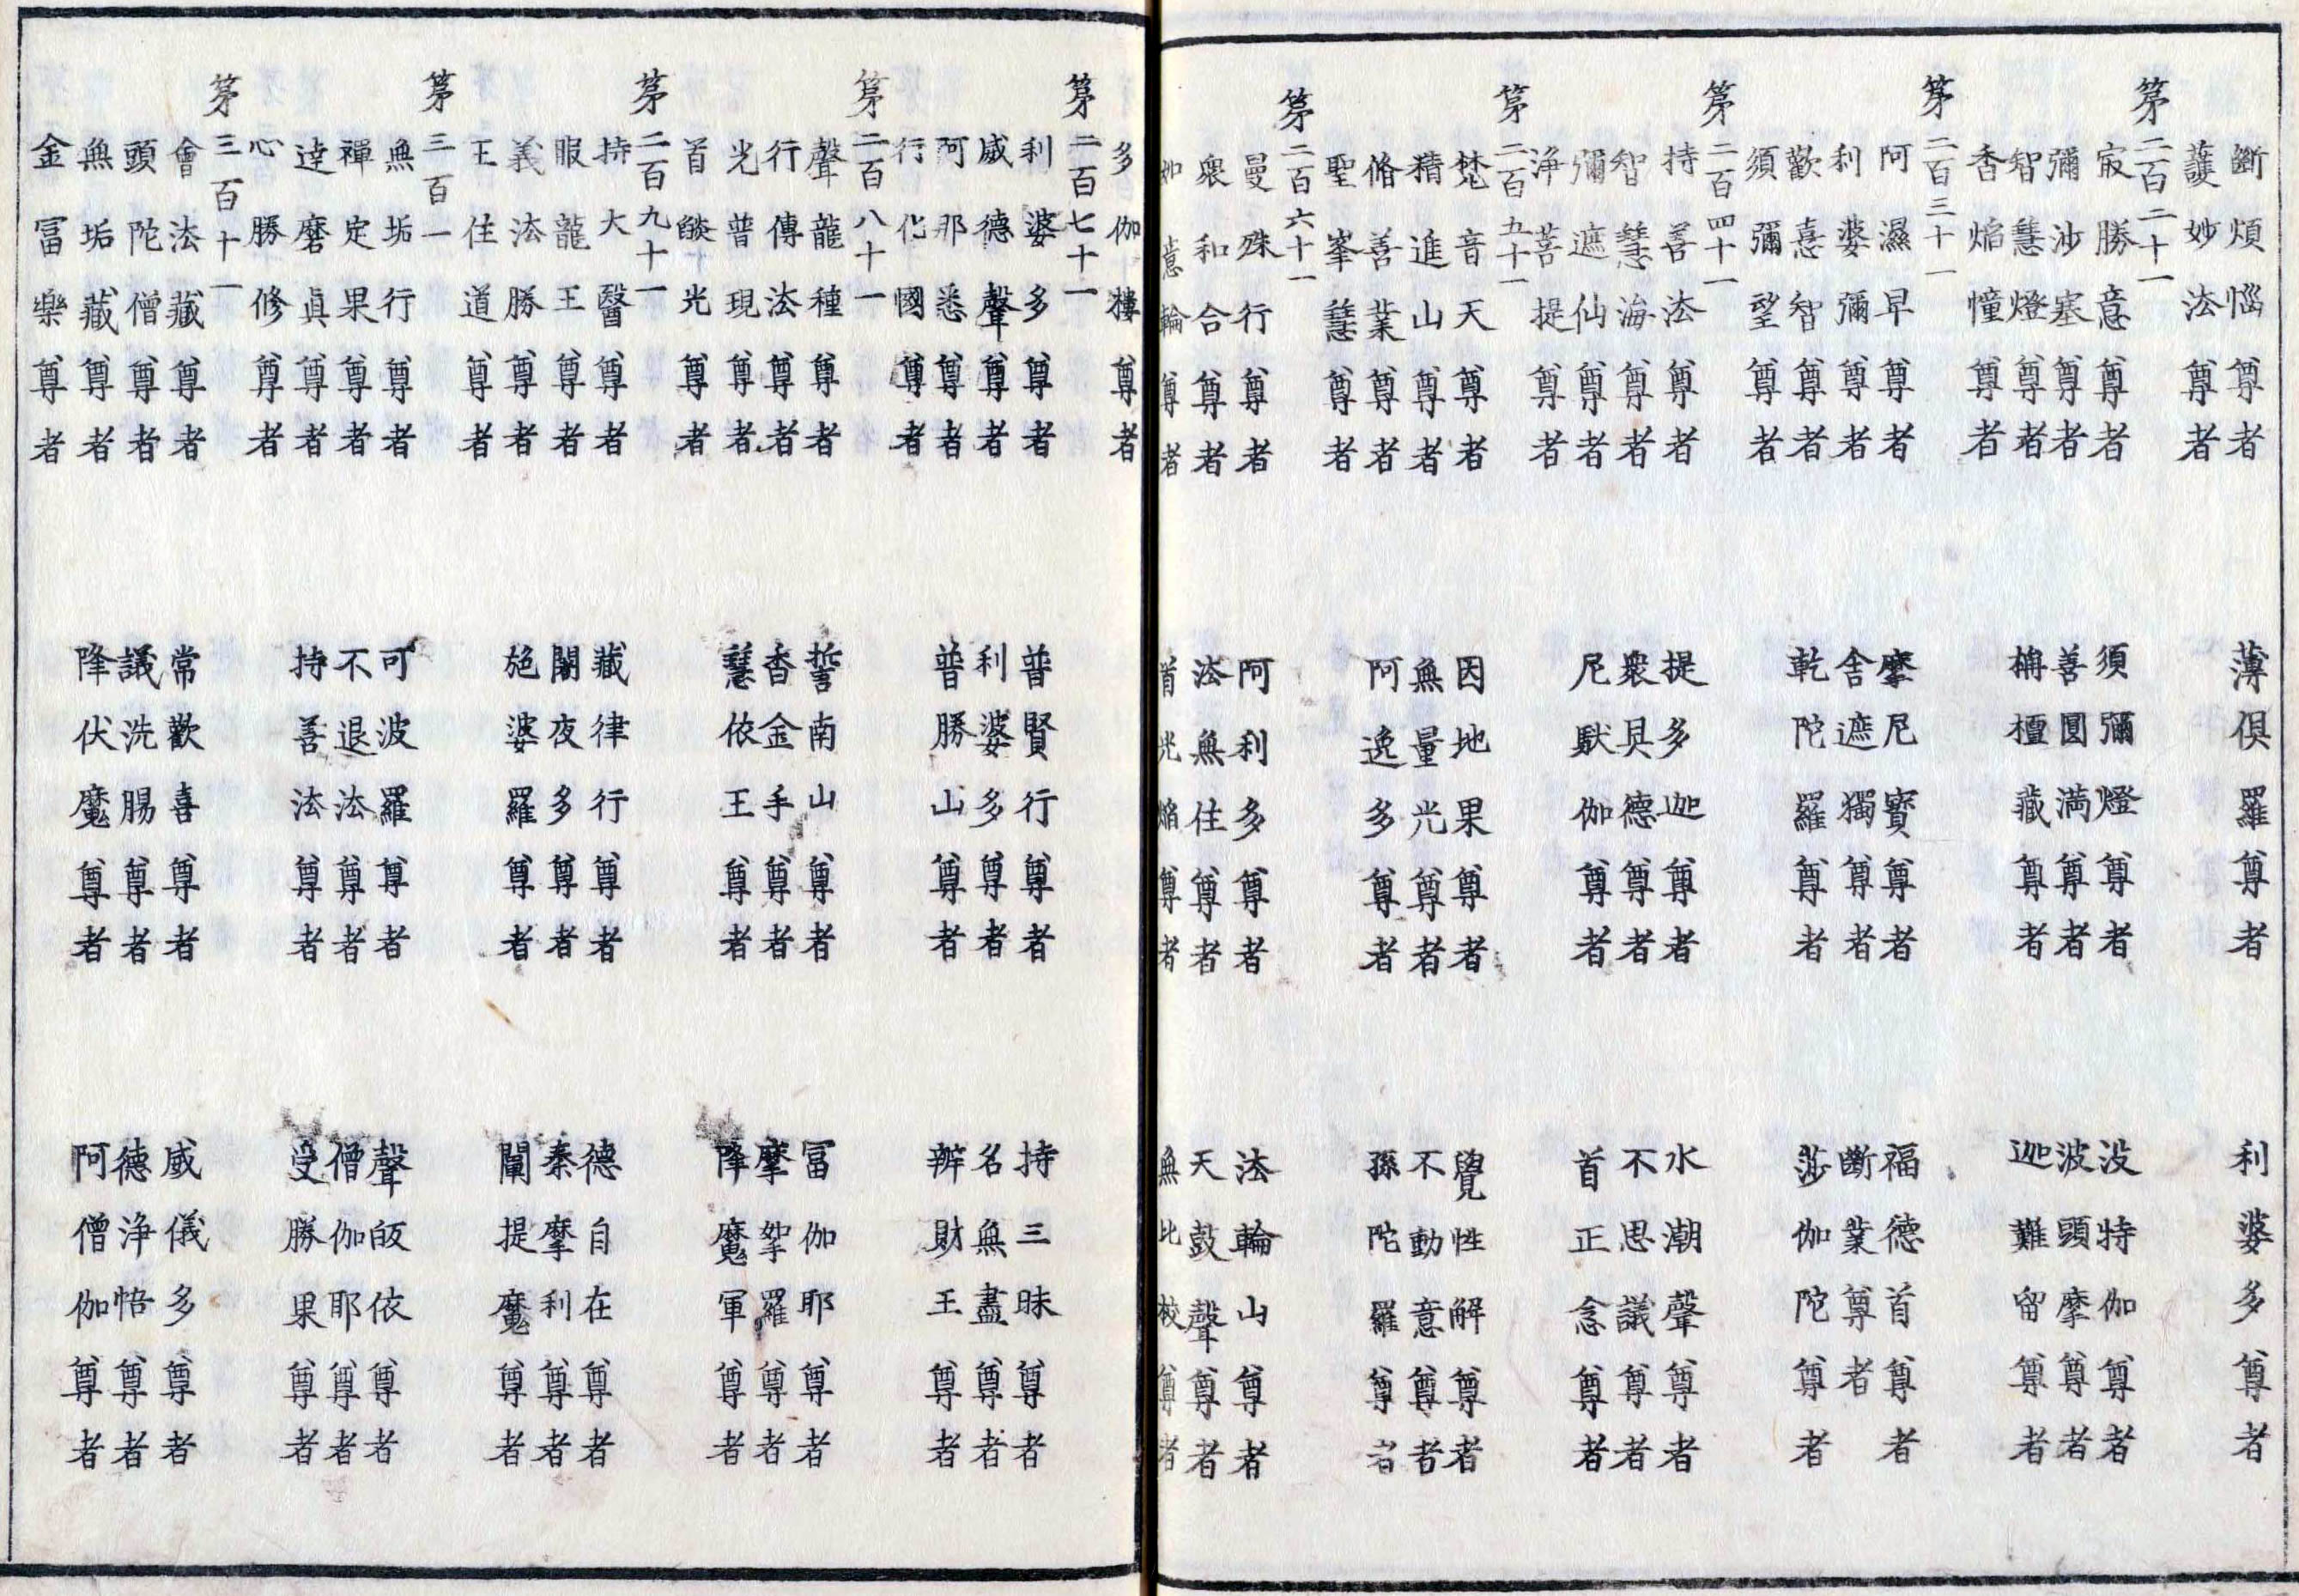 斷煩惱尊者 薄俱羅尊者 利婆多尊者
護妙法尊者
第二百二十一
㝡勝意尊者 須彌燈尊者 没特伽尊者
彌沙塞尊者 善圓满尊者 波頭摩尊者
智慧燈尊者 栴檀藏尊者 迦難留尊者
香焔幢尊者
第二百三十一
阿濕早尊者 摩尼寳尊者 福德首尊者
利婆彌尊者 舎遮獨尊者 斷業尊者
歡憙智尊者 乾陀羅尊者 莎伽陀尊者
須彌望尊者
第二百四十一
持善法尊者 提多迦尊者 水潮聲尊者
智慧海尊者 衆具德尊者 不思議尊者
彌遮仙尊者 尼馱伽尊者 首正念尊者
浄菩提尊者
第二百五十一
梵音天尊者 因地果尊者 覺性解尊者
精進山尊者 無量光尊者 不動意尊者
脩善業尊者 阿逸多尊者 孫陀羅尊者
聖峯慧尊者
第二百六十一
曼殊行尊者 阿利多尊者 法輪山尊者
衆和合尊者 法無住尊者 天鼓聲尊者
如意輪尊者 首光焔尊者 無比校尊者
多伽樓尊者
第二百七十一
利婆多尊者 普賢行尊者 持三昧尊者
威德聲尊者 利婆多尊者 名無盡尊者
阿那悉尊者 普勝山尊者 辨財王尊者
行化國尊者
第二百八十一
聲龍種尊者 誓南山尊者 冨伽耶尊者
行傳法尊者 香金手尊者 摩拏羅尊者
光普現尊者 慧依王尊者 降魔軍尊者
首燄光尊者
第二百九十一
持大醫尊者 藏律行尊者 德自在尊者
服龍王尊者 闍夜多尊者 秦摩利尊者
義法勝尊者 施婆羅尊者 闡提魔尊者
王住道尊者
第三百一
無垢行尊者 可波羅尊者 聲皈依尊者
禪定果尊者 不退法尊者 僧伽耶尊者
達磨眞尊者 持善法尊者 受勝果尊者
心勝修尊者
第三百十一
會法藏尊者 常歡喜尊者 威儀多尊者
頭陀僧尊者 議洗腸尊者 德浄悟尊者
無垢藏尊者 降伏魔尊者 阿僧伽尊者
金冨樂尊者